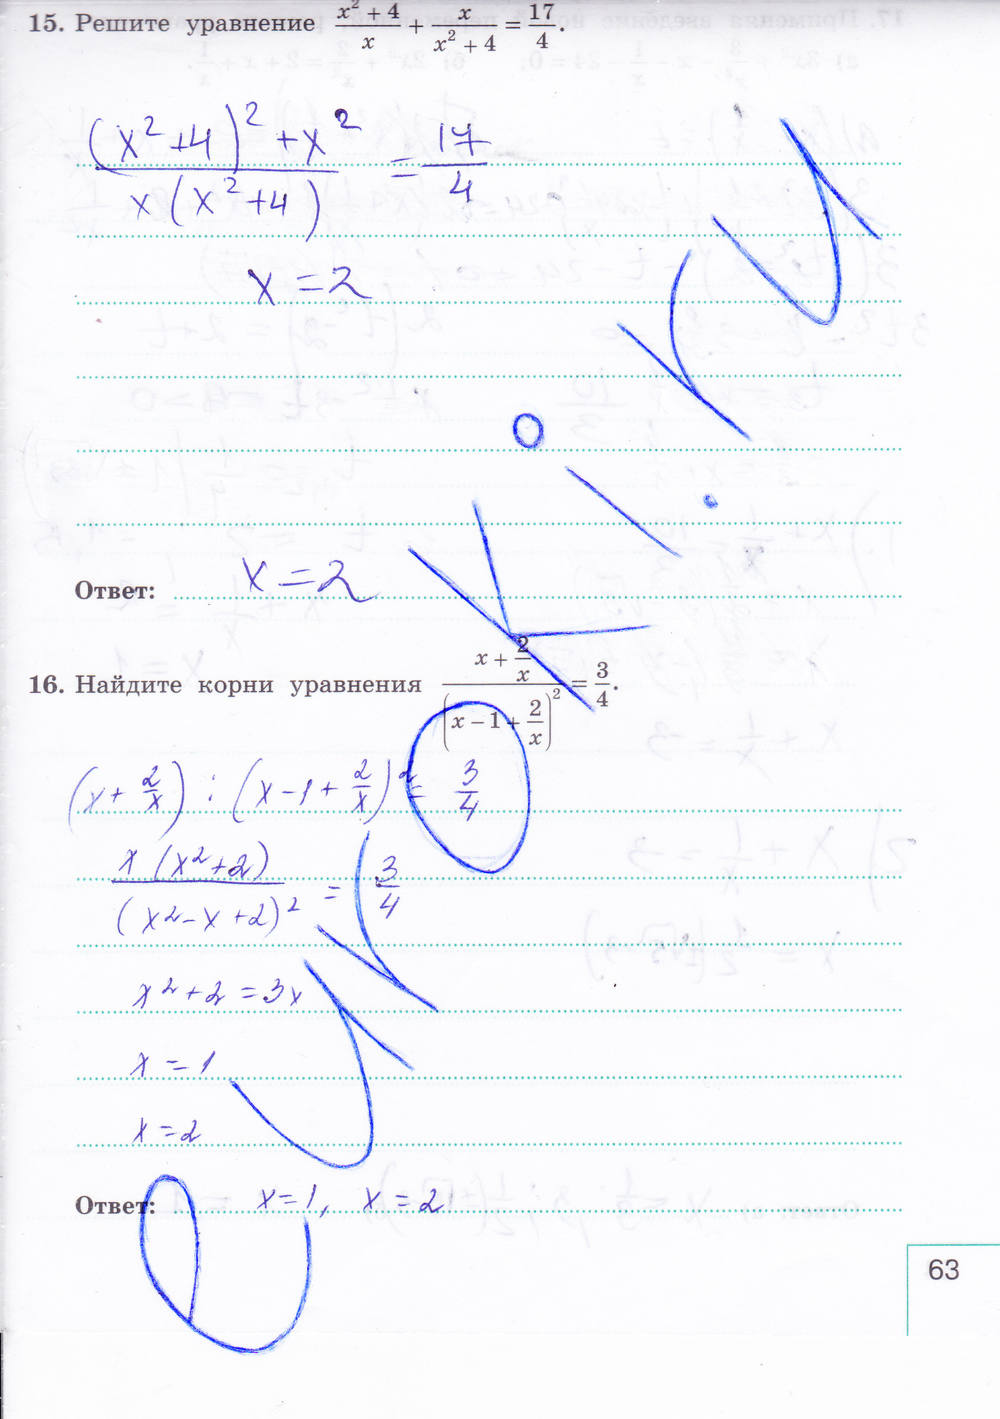 15. Решите уравнение (x² + 4)/x + x/(x² + 4) = 17/4.
((x²+4)²+x²)/(x(x²+4)) = 17/4
x = 2
Ответ: x = 2
16. Найдите корни уравнения (x + 2/x)/(x − 1 + 2/x)² = 3/4.
(x + 2/x) : (x − 1 + 2/x)² = 3/4
(x (x²+2))/((x²−x+2)²) = 3/4
x²+2 = 3x
x = 1
x = 2
Ответ: x = 1, x = 2
63